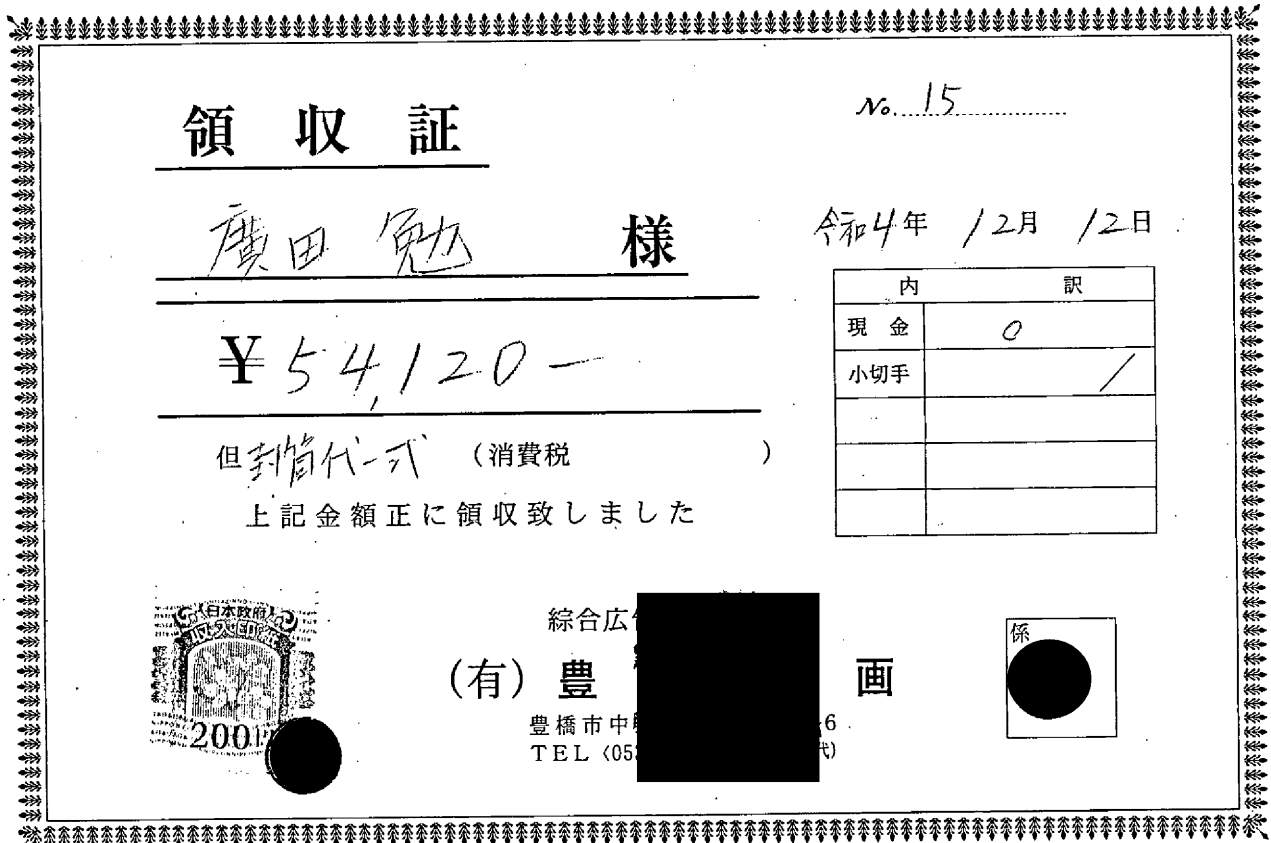 領収証
No. 15
廣田 勉 様
令和4年 12月 12日
¥54,120-
内訳
現金 0
小切手 /
但 封筒代一式 (消費税 )
上記金額正に領収致しました
日本政府
200
綜合広
(有) 豊 画
豊橋市中 6
TEL (053 代)
係